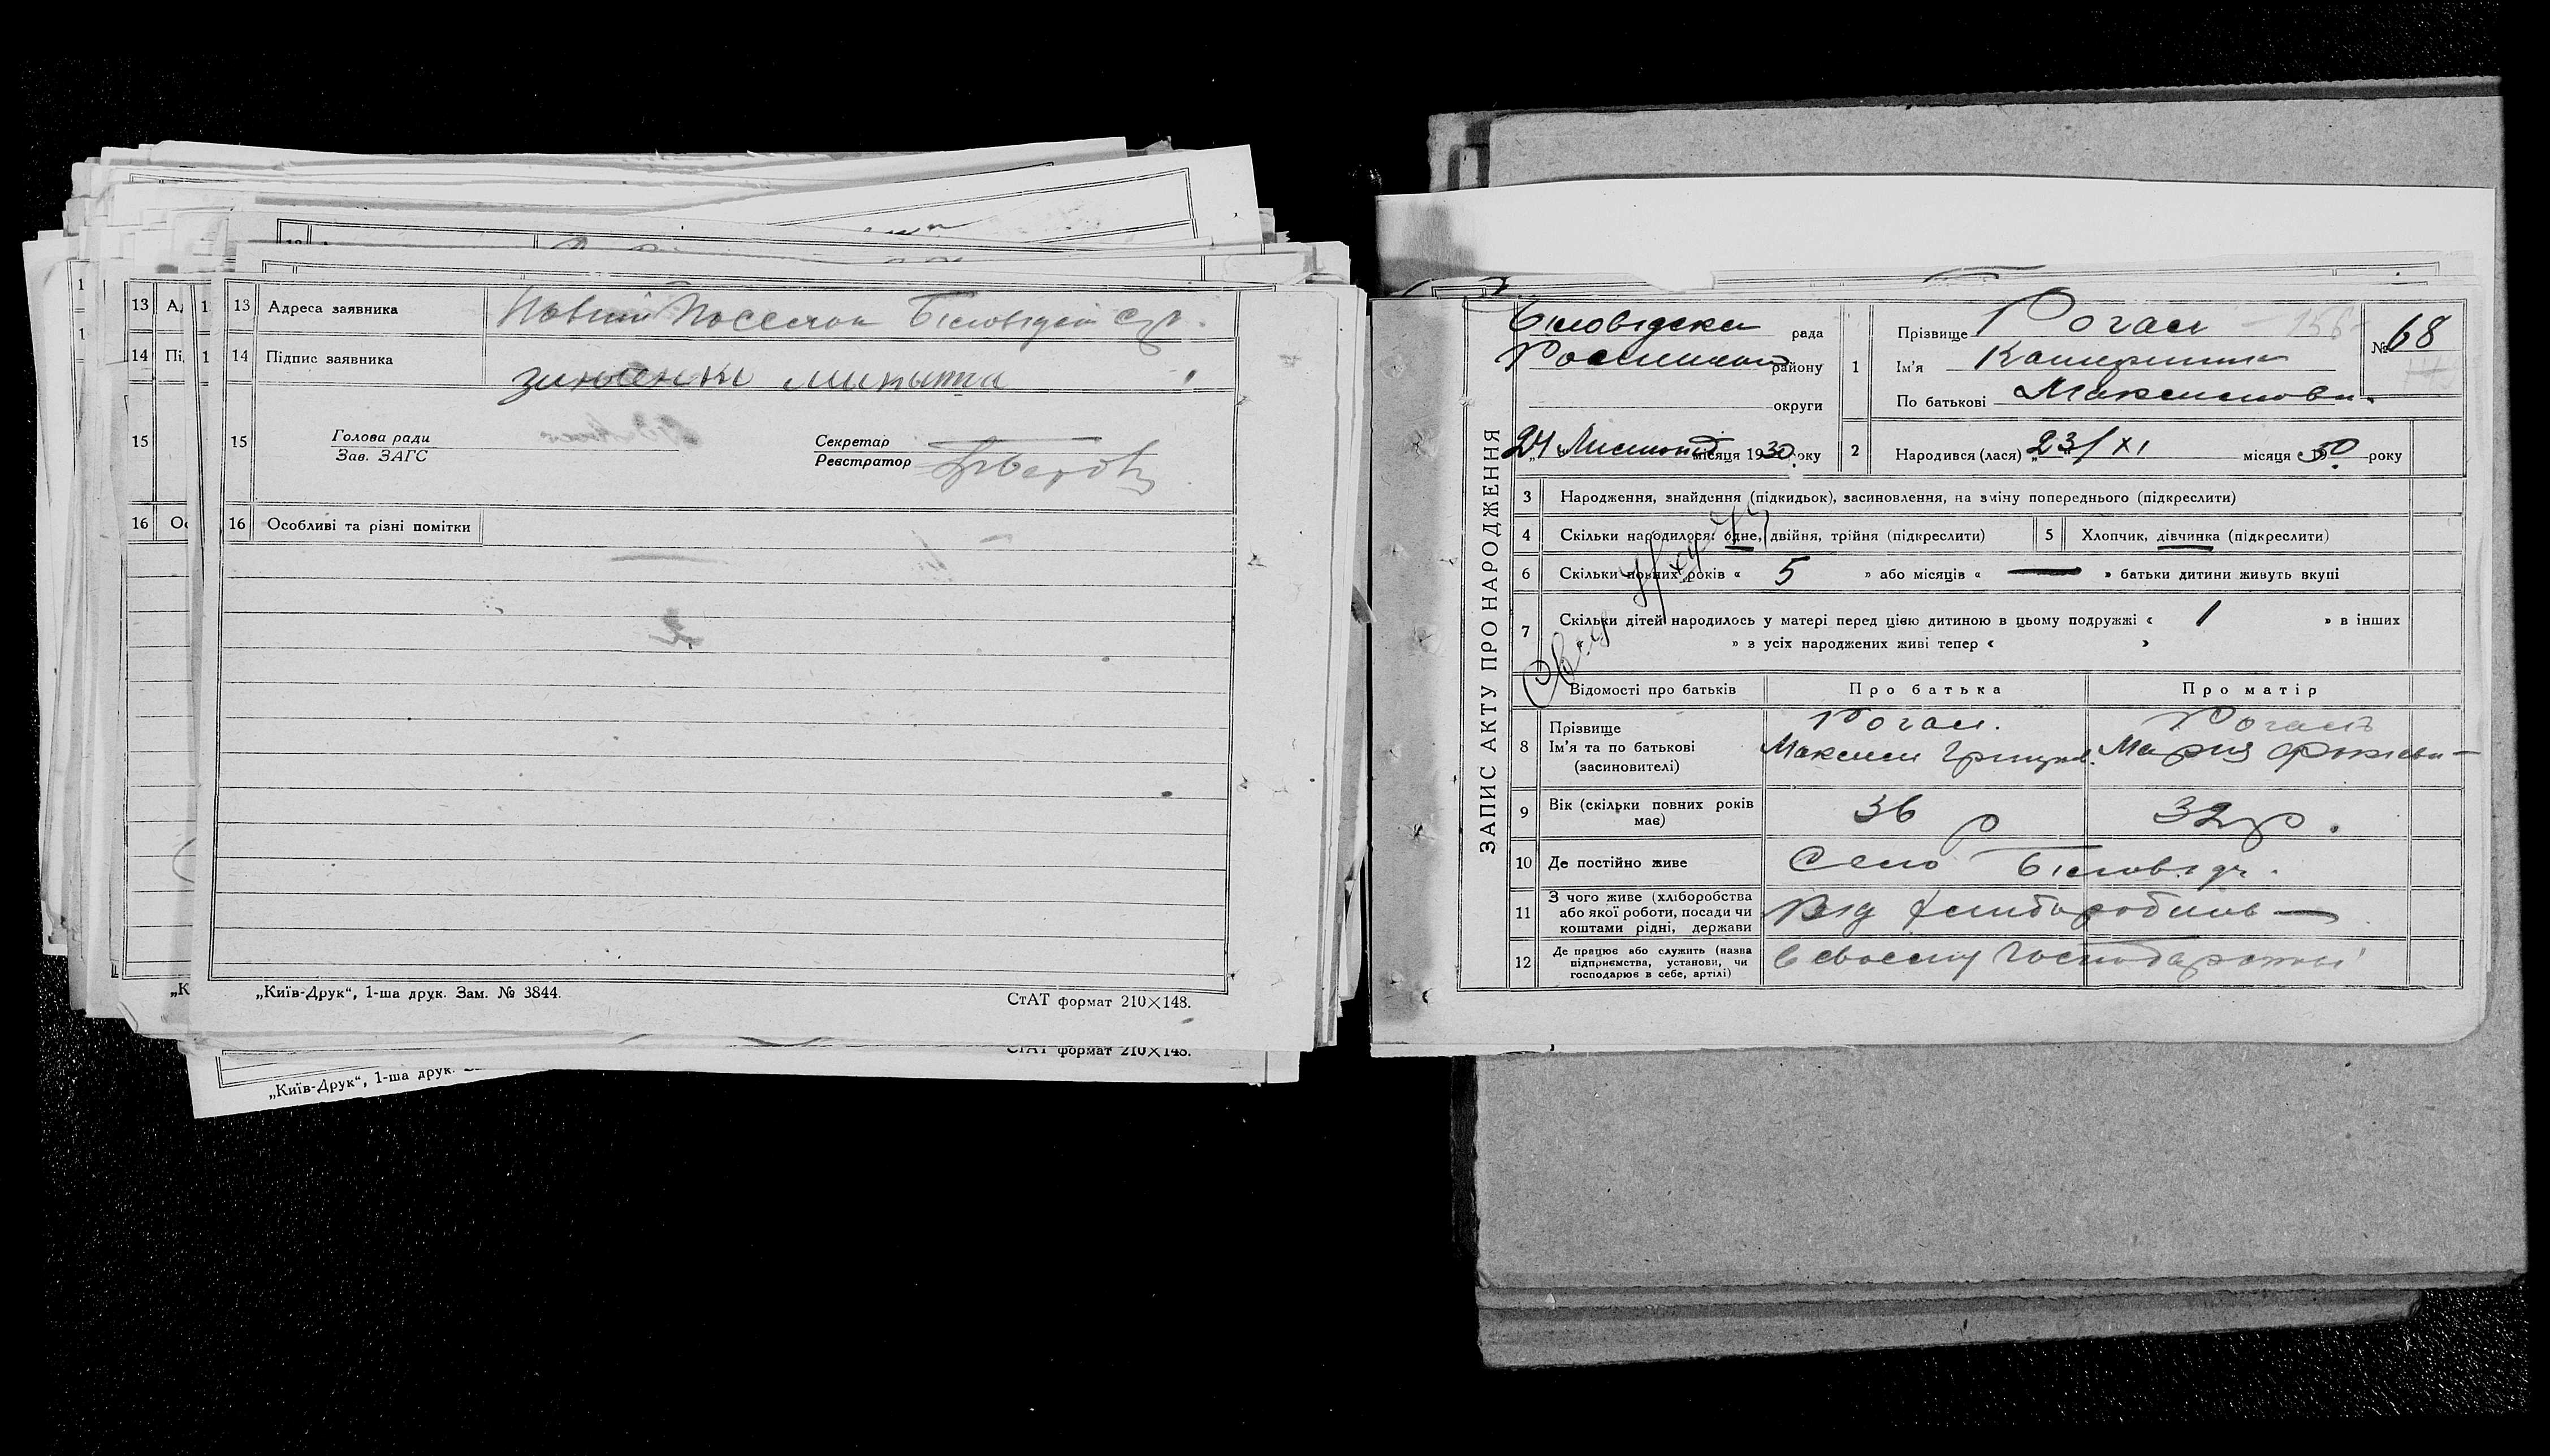 13 Адреса заявника
14 Підпис заявника
15 Голова ради Секретар
Зав. ЗАГС Реєстратор
16 Особливі та різні помітки
„Київ-Друк“, 1-ша друк. Зам. № 3844.
СтАТ формат 210×148.
СтАТ формат 210×148.
„Київ-Друк“, 1-ша друк.
ЗАПИС АКТУ ПРО НАРОДЖЕННЯ
рада
району
округи
24 місяця 1930 року
1 Прізвище Роган
Ім'я Катерина
По батькові Максимовн.
№ 68
2 Народився (лася) „23/XI місяця 30 року
3 Народження, знайдення (підкидьок), засиновлення, на зміну попереднього (підкреслити)
4 Скільки народилося: одне, двійня, трійня (підкреслити)
5 Хлопчик, дівчинка (підкреслити)
6 Скільки повних років « 5 » або місяців « — » батьки дитини живуть вкупі
7 Скільки дітей народилось у матері перед цією дитиною в цьому подружжі « 1 » в інших
» з усіх народжених живі тепер « »
Відомості про батьків Про батька Про матір
8 Прізвище Роган. Роган
Ім'я та по батькові Максим Мария
(засиновителі)
9 Вік (скільки повних років має) 36 32 р.
10 Де постійно живе Село Біловід.
11 З чого живе (хліборобства
або якої роботи, посади чи
коштами рідні, держави
Від
12 Де працює або служить (назва
підприємства, установи, чи
господарює в себе, артілі)
в своєму господарстві